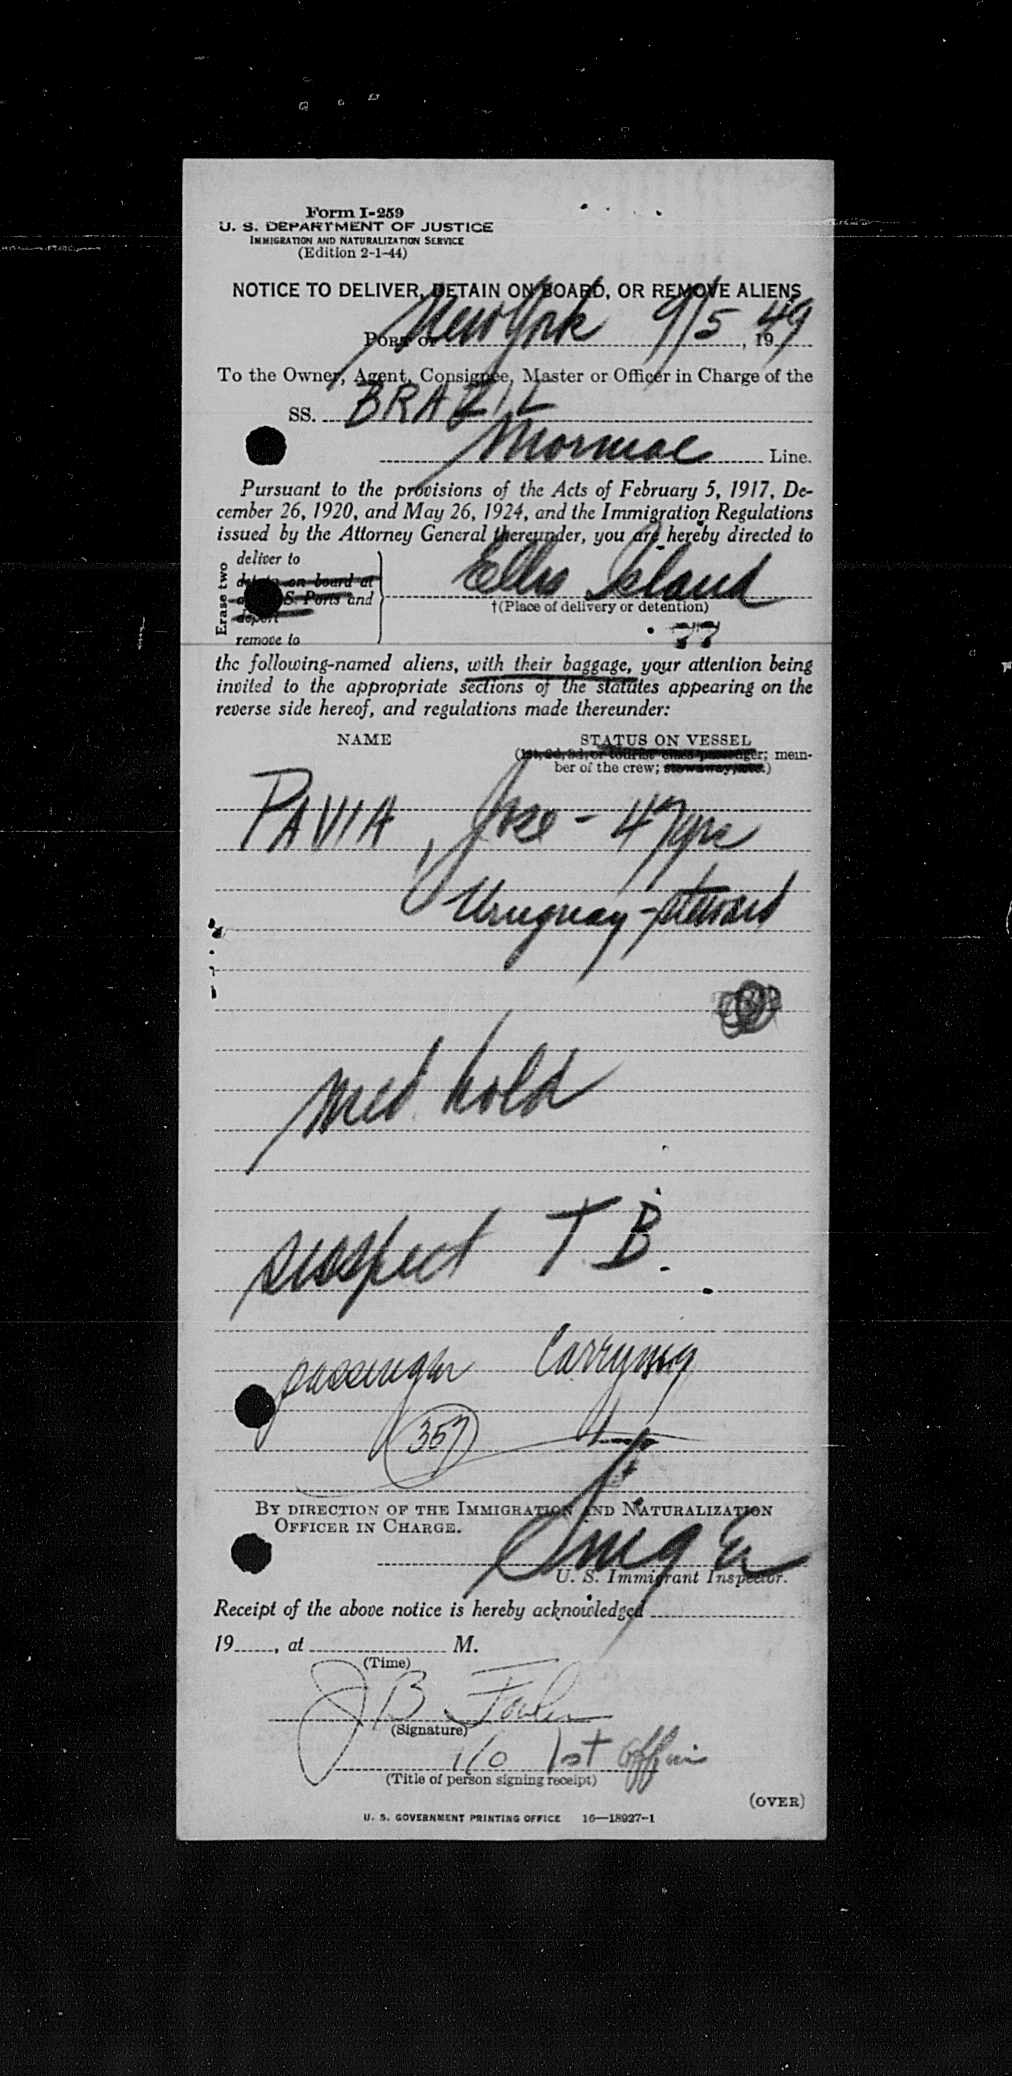 Form I-259
U. S. DEPARTMENT OF JUSTICE
IMMIGRATION AND NATURALIZATION SERVICE
(Edition 2-1-44)
NOTICE TO DELIVER, DETAIN ON BOARD, OR REMOVE ALIENS
PORT OF New York 9/5, 1949
To the Owner, Agent, Consignee, Master or Officer in Charge of the
SS. BRAZIL
Mormac Line.
Pursuant to the provisions of the Acts of February 5, 1917, De-
cember 26, 1920, and May 26, 1924, and the Immigration Regulations
issued by the Attorney General thereunder, you are hereby directed to
Erase two
deliver to
detain on board at
S. Ports and
deport
remove to
Ellis Island
†(Place of delivery or detention)
the following-named aliens, with their baggage, your attention being
invited to the appropriate sections of the statutes appearing on the
reverse side hereof, and regulations made thereunder:
NAME STATUS ON VESSEL
(1st, 2d, 3d, or tourist class passenger; mem-
ber of the crew; stowaway, etc.)
PAVIA, Jose - 47 yrs
Uruguay - steward
med hold
suspect T.B.
passenger carrying
357
BY DIRECTION OF THE IMMIGRATION AND NATURALIZATION
OFFICER IN CHARGE.
U. S. Immigrant Inspector.
Receipt of the above notice is hereby acknowledged
19, at M.
(Time)
J B
(Signature)
1st Office
(Title of person signing receipt)
(OVER)
U. S. GOVERNMENT PRINTING OFFICE 16—18927-1